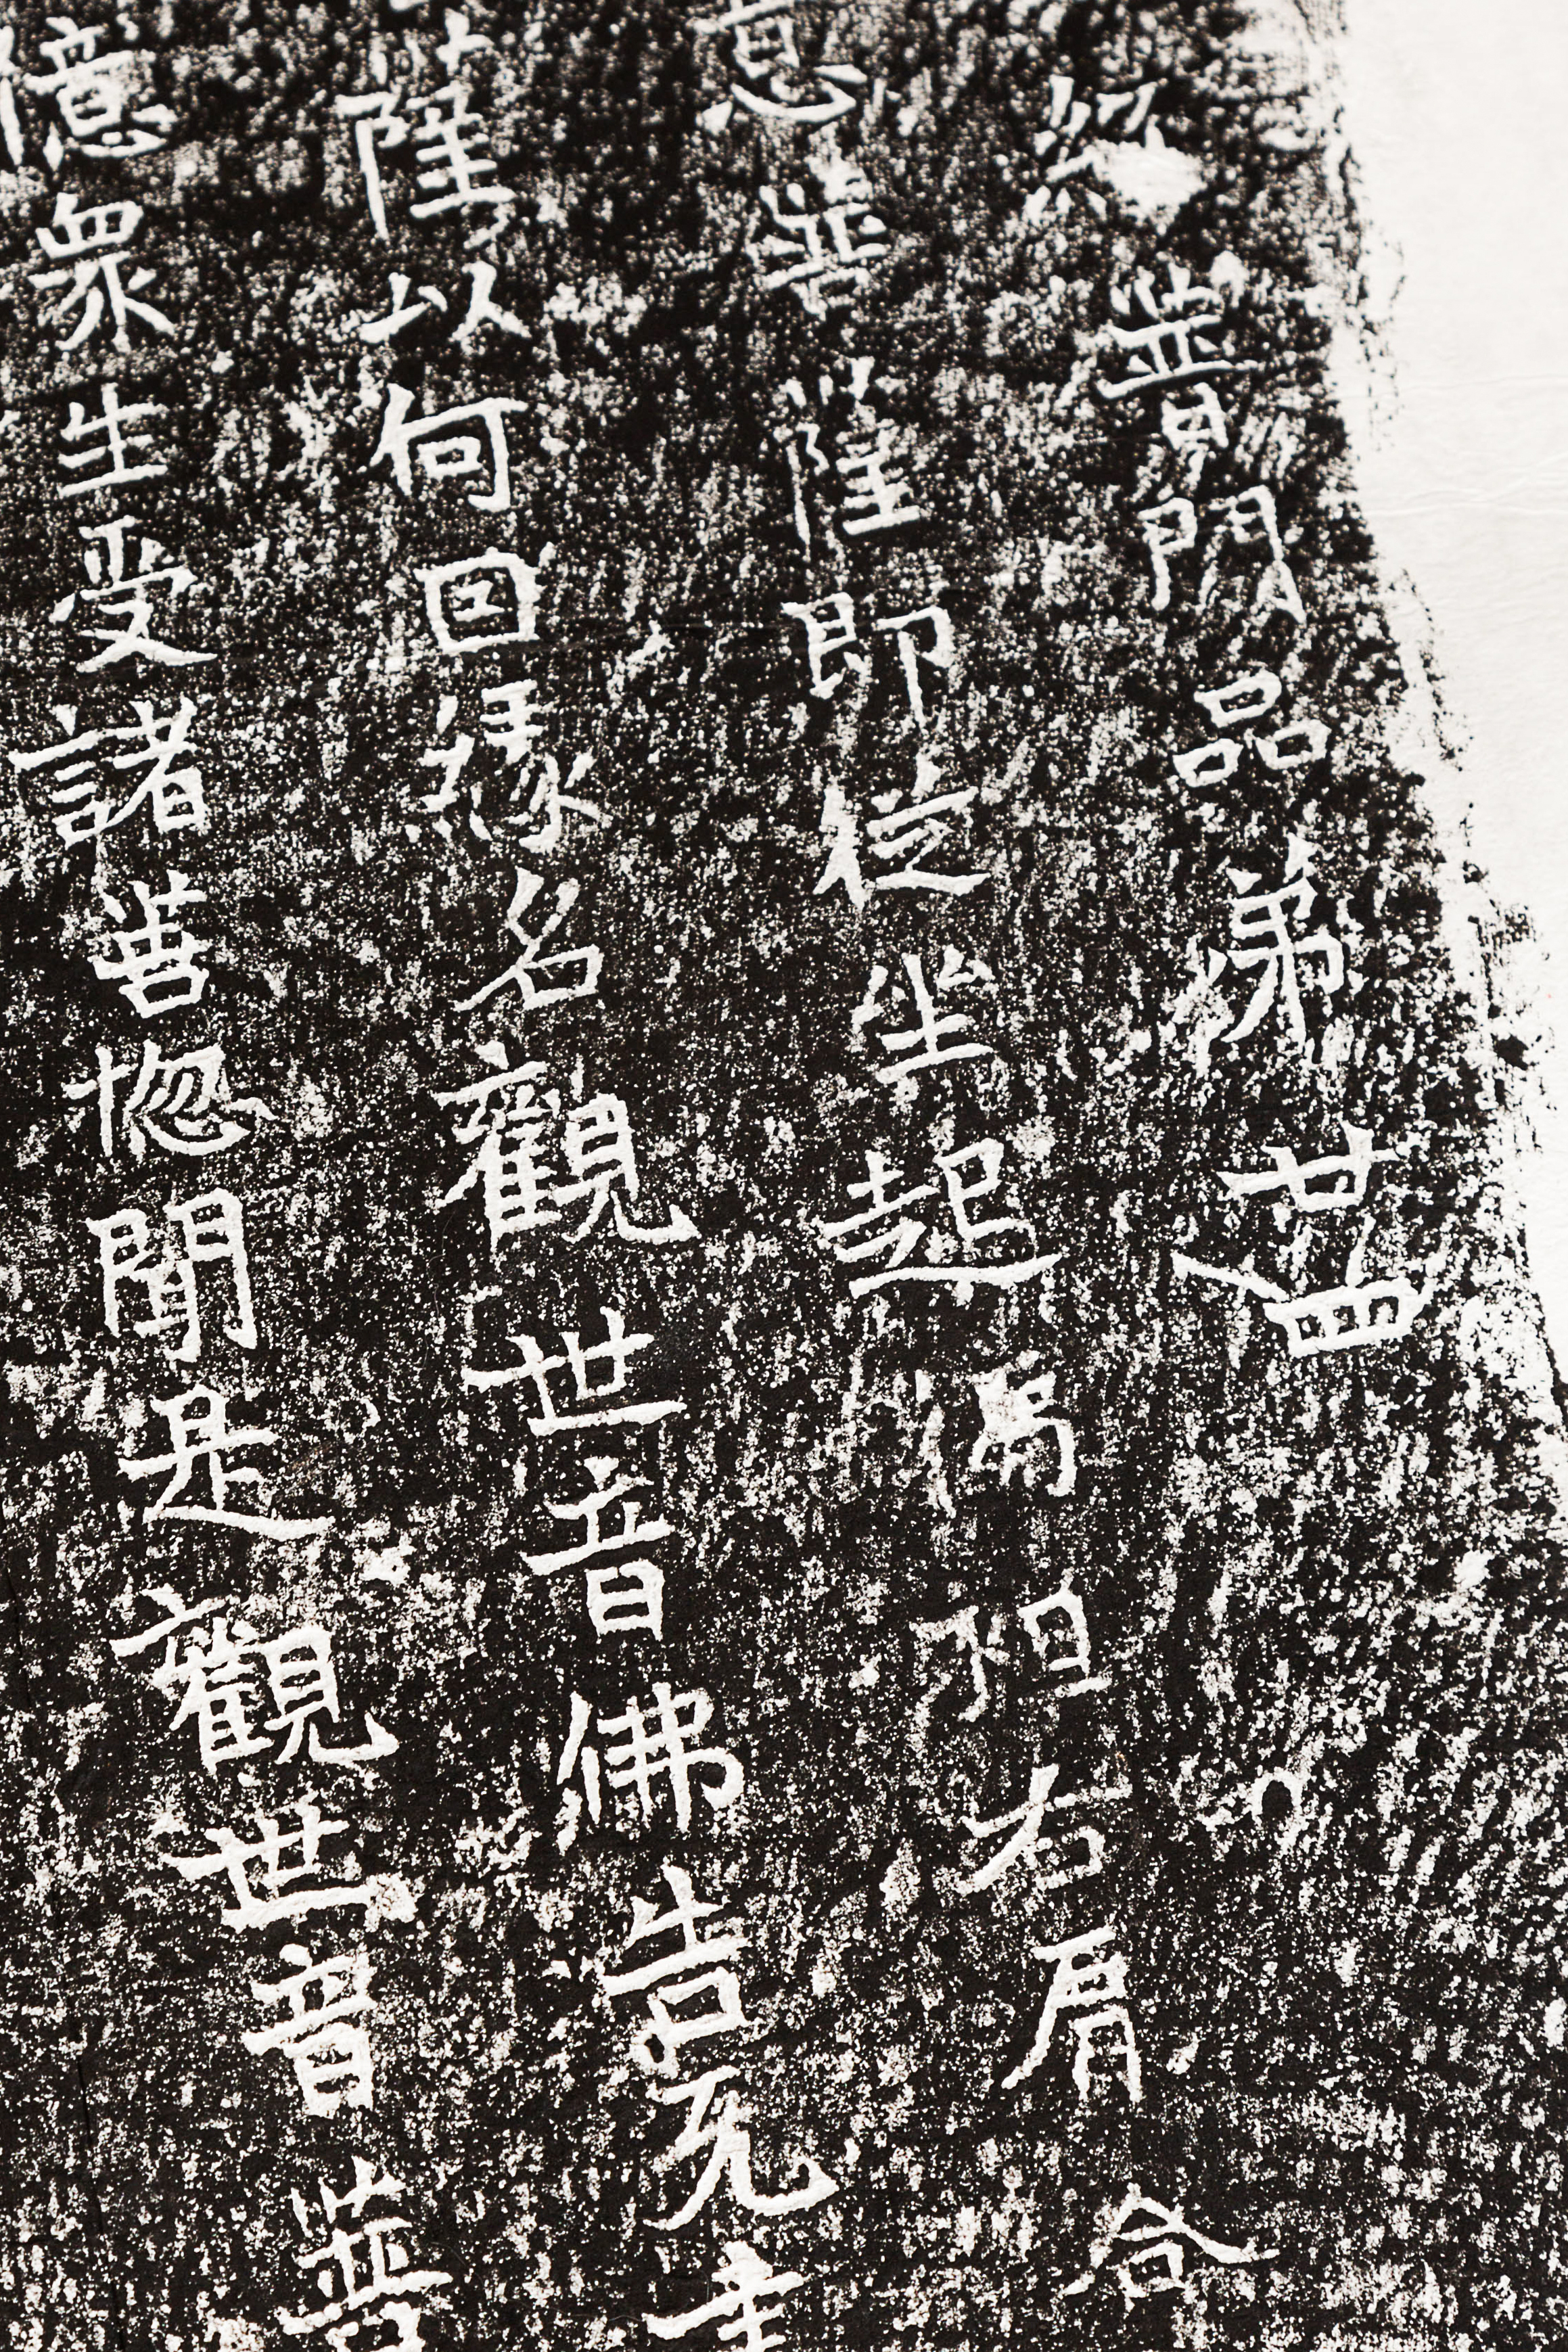 經普門品弟廿四
意菩薩即從坐起偏袒右肩合
薩以何因緣名觀世音佛告无
億眾生受諸苦惱聞是觀世音菩